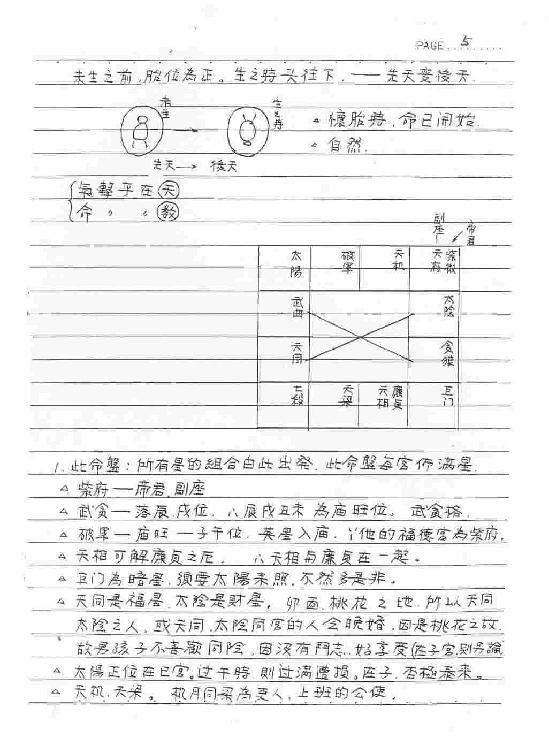 PAGE 5
未生之前,胎位為正。生之時頭往下.——先天變後天.
未生
生之時
△懷胎時,命已開始
△自然.
先天→後天
氣擊乎在天
命〃〃數
副座 帝君
太陽 破軍 天机 天府 紫微
武曲 太陰
天同 貪狼
七殺 天梁 天相 廉貞 巨门
1. 此命盤:所有星的組合由此出發.此命盤每宮佈滿星.
△紫府—帝君.副座
△武貪—落辰.戌位. ∵辰戌丑未為庙旺位. 武貪格.
△破軍—庙旺—子午位.英星入庙. ∵他的福德宮為紫府.
△天相可解廉貞之厄. ∴天相與廉貞在一起.
△巨门為暗星,須要太陽來照.不然多是非.
△天同是福星.太陰是財星, 卯酉.桃花之地.所以天同
太陰之人.或天同.太陰同宮的人会晚婚.因是桃花之故.
故男孩子不喜歡同陰,因沒有鬥志.好享受(座子宮,則另論
△太陽正位在巳宮。过午時則过滿遭損。座子.否極泰來。
△天机.天梁。机月同梁為吏人,上班的公使.